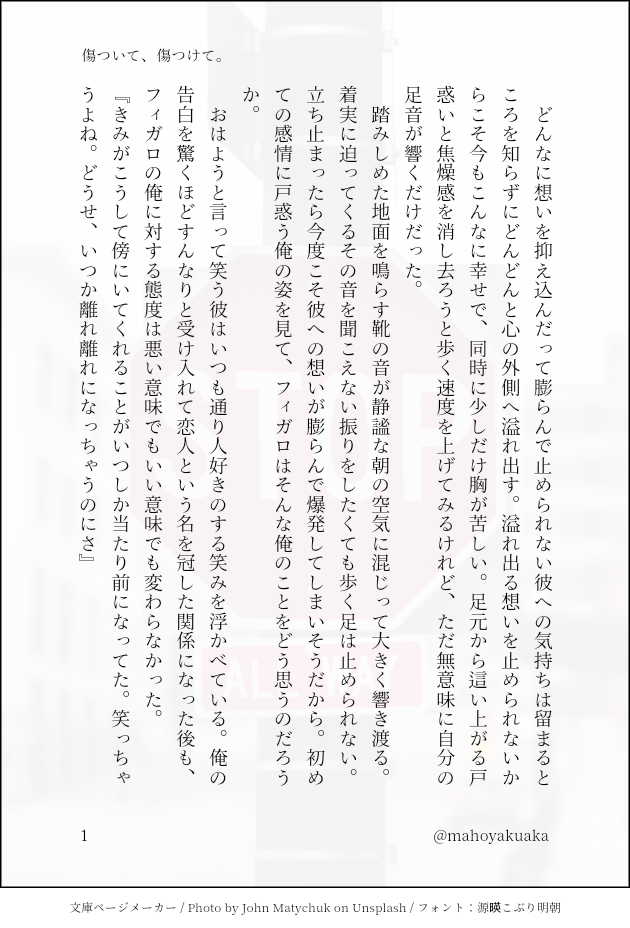 傷ついて、傷つけて。
　どんなに想いを抑え込んだって膨らんで止められない彼への気持ちは留まると
ころを知らずにどんどんと心の外側へ溢れ出す。溢れ出る想いを止められないか
らこそ今もこんなに幸せで、同時に少しだけ胸が苦しい。足元から這い上がる戸
惑いと焦燥感を消し去ろうと歩く速度を上げてみるけれど、ただ無意味に自分の
足音が響くだけだった。
　踏みしめた地面を鳴らす靴の音が静謐な朝の空気に混じって大きく響き渡る。
着実に迫ってくるその音を聞こえない振りをしたくても歩く足は止められない。
立ち止まったら今度こそ彼への想いが膨らんで爆発してしまいそうだから。初め
ての感情に戸惑う俺の姿を見て、フィガロはそんな俺のことをどう思うのだろう
か。
　おはようと言って笑う彼はいつも通り人好きのする笑みを浮かべている。俺の
告白を驚くほどすんなりと受け入れて恋人という名を冠した関係になった後も、
フィガロの俺に対する態度は悪い意味でもいい意味でも変わらなかった。
『きみがこうして傍にいてくれることがいつしか当たり前になってた。笑っちゃ
うよね。どうせ、いつか離れ離れになっちゃうのにさ』
STOP
ALL WAY
1
@mahoyakuaka
文庫ページメーカー / Photo by John Matychuk on Unsplash / フォント：源暎こぶり明朝